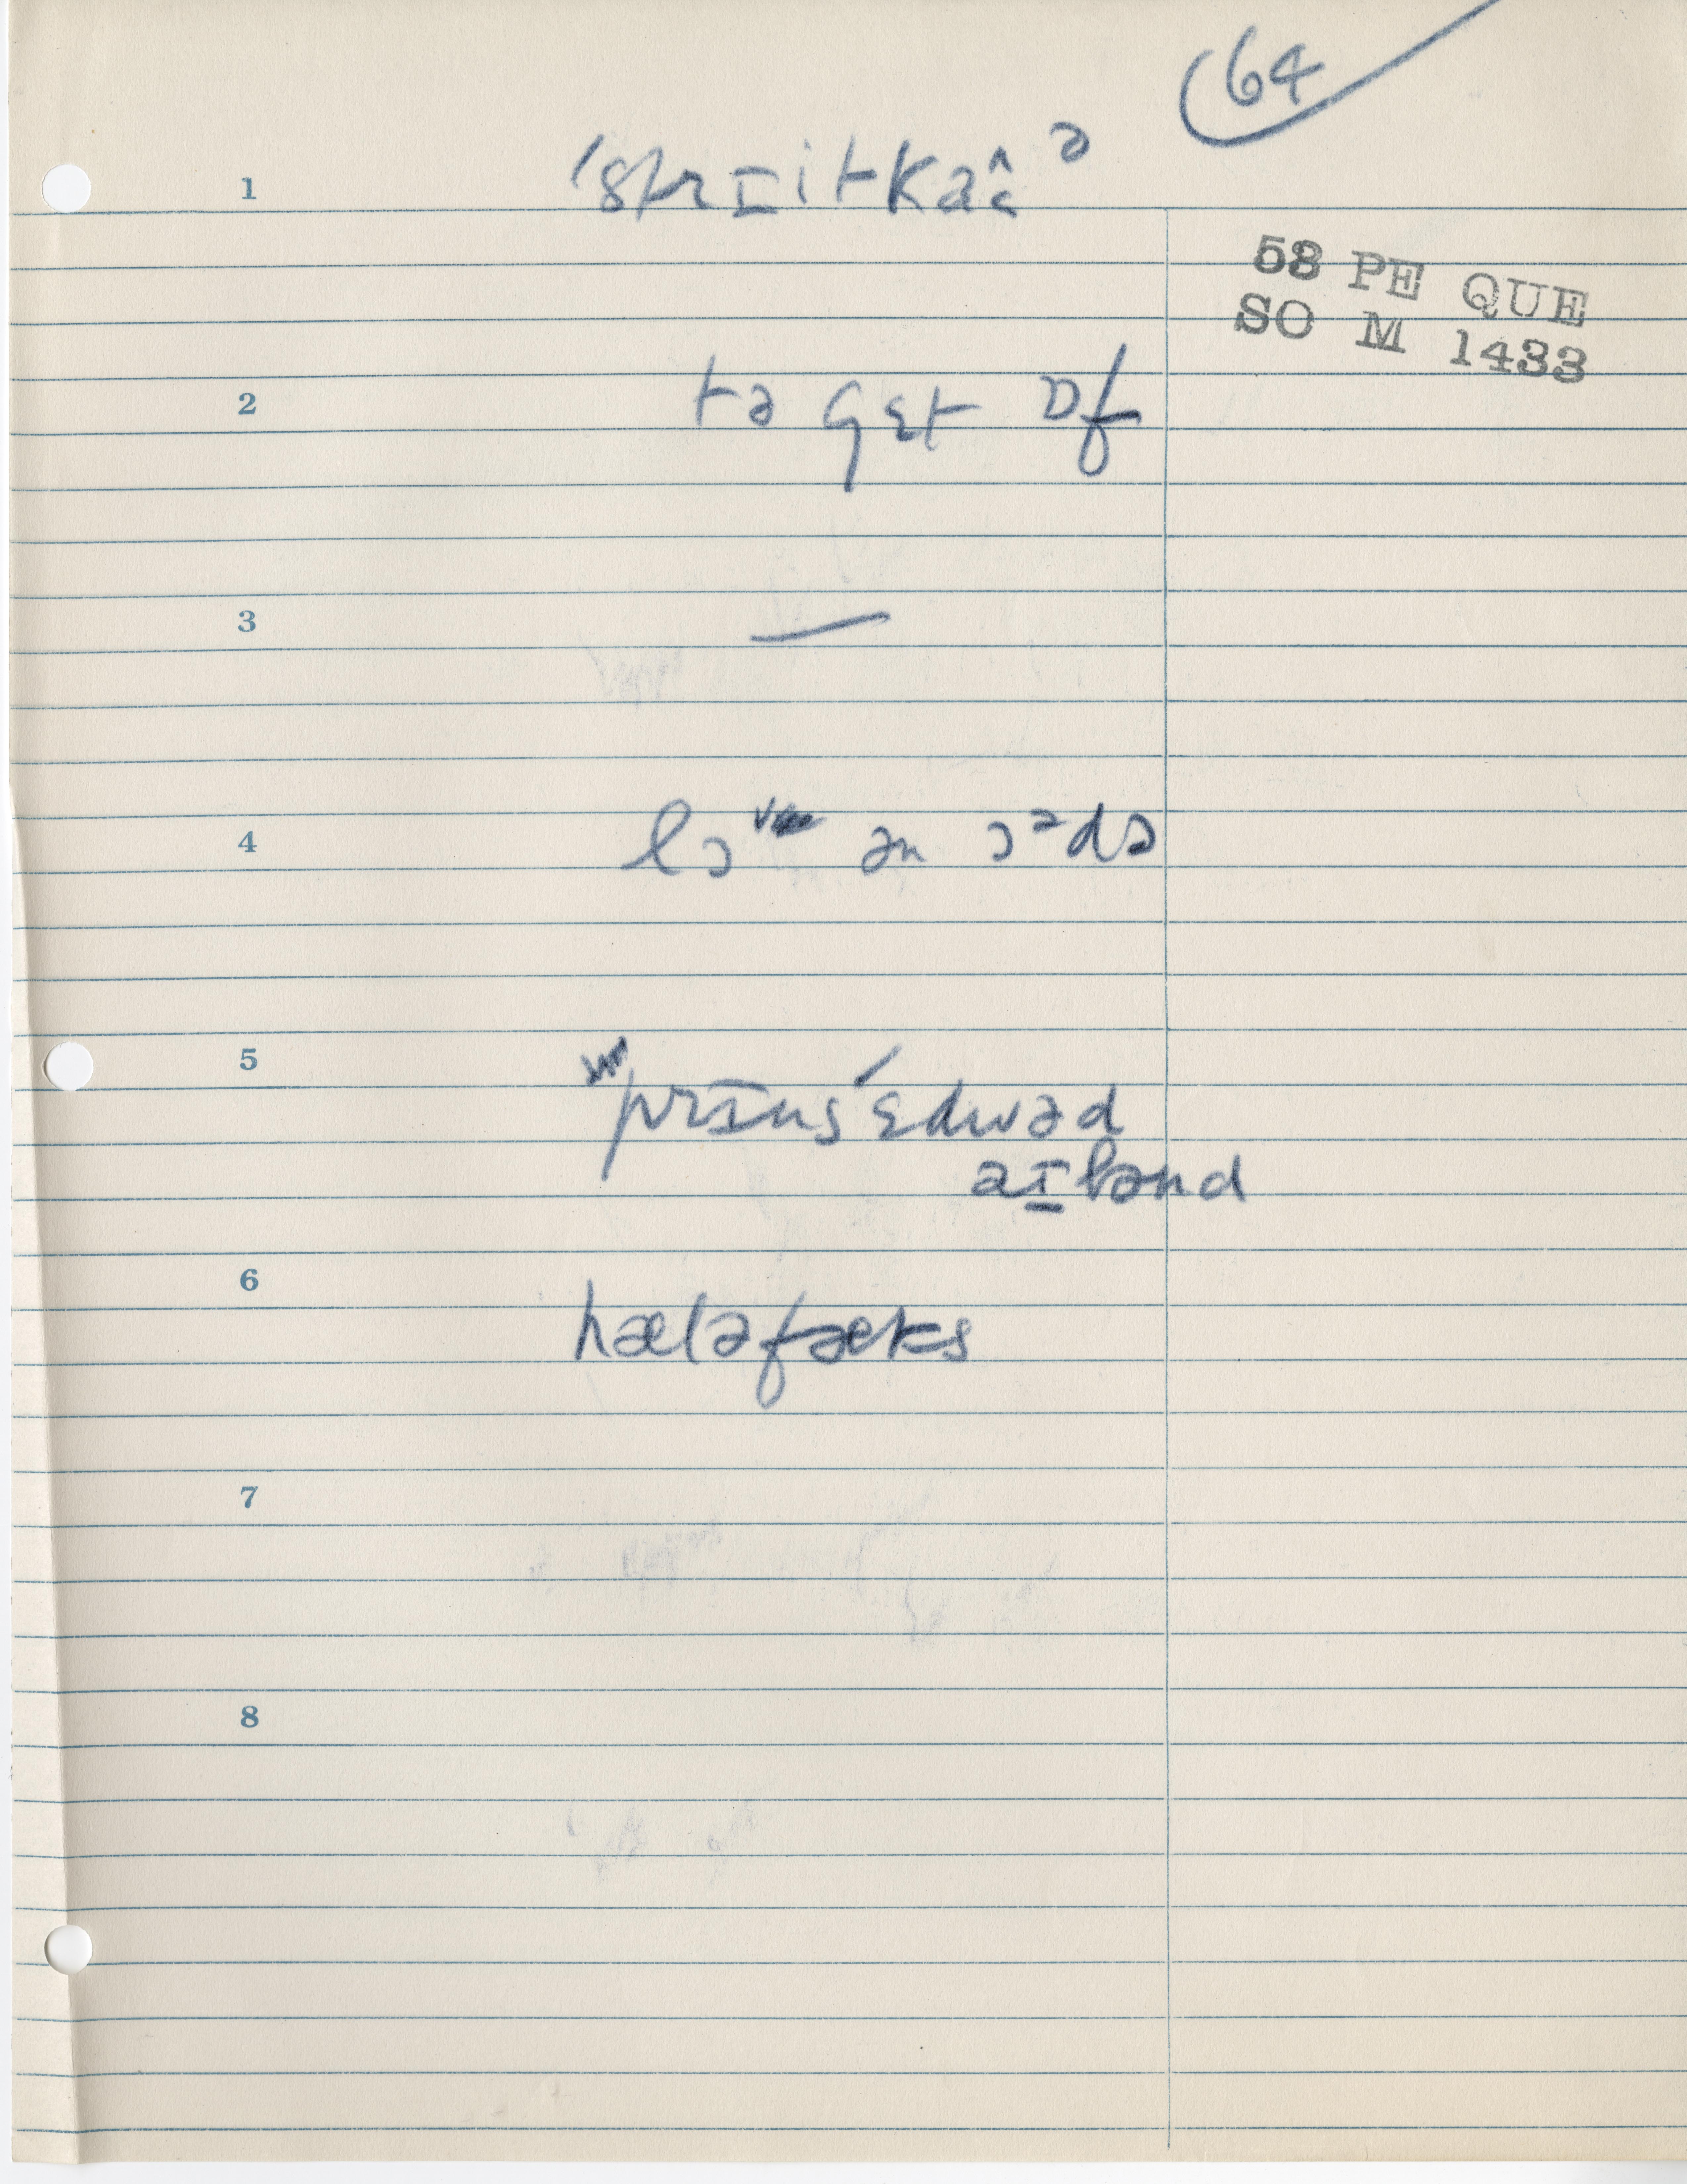 64
1 ˈstrɪitkaâᵊ
58 PE QUE
SO M 1433
2 tə gɛt ɒf
3 —
4 lɔ ən ɔᵊdə
5 prɪns ˈɛdwəd
aɪlənd
6 hæləfæks
7
8